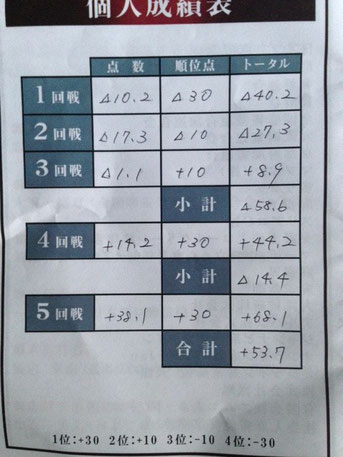 個人成績表
点数 順位点 トータル
1回戦 △10.2 △30 △40.2
2回戦 △17.3 △10 △27.3
3回戦 △1.1 +10 +8.9
小計 △58.6
4回戦 +14.2 +30 +44.2
小計 △14.4
5回戦 +38.1 +30 +68.1
合計 +53.7
1位:+30 2位:+10 3位:-10 4位:-30